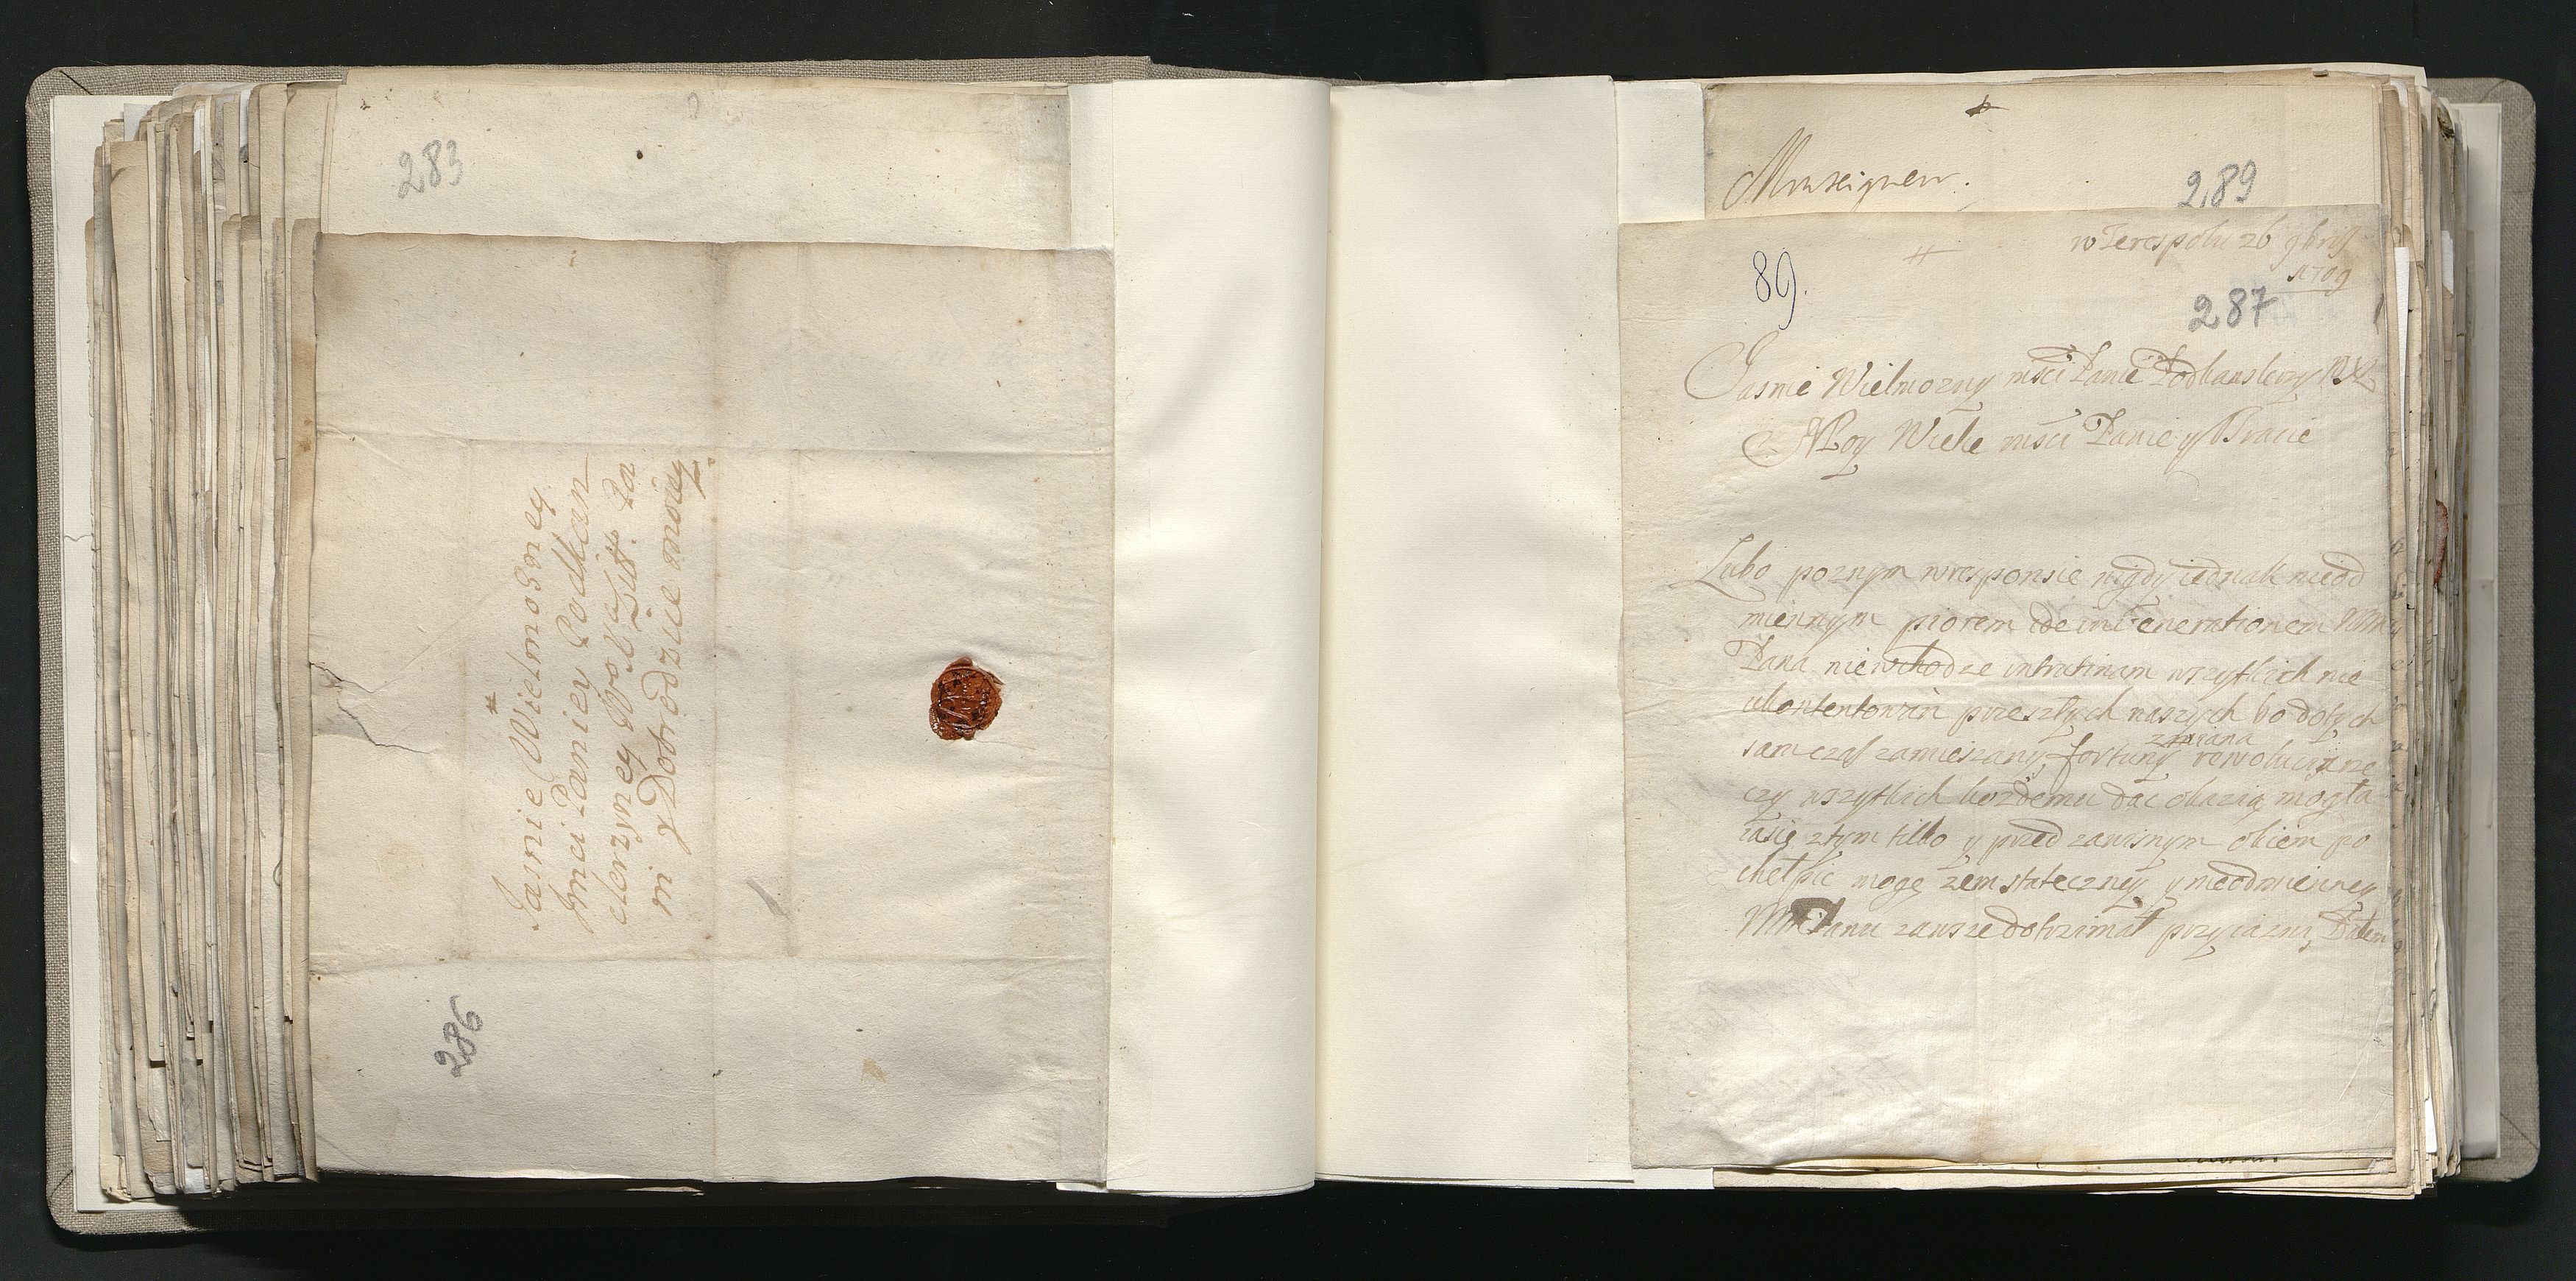 283
Jasnie Wielmozney
Jmci Paniey Podkan
clerzyney Wo Xa Litt. Pa
ni y Dobrodziie moiey
286
Monseigneur.
289
w Terespolu 26 9bris
1709
89.
287
Jasnie Wielmozny msci Panie Podkanslerzy WXL
Moy Wielce msci Panie y Bracie
Lubo poznym w responsie nigdy iednak nieod
miennym piorem ide in Venerationem WM
Pana nie wchodze in trutinam wszytkich nie
ukontentowan przeszłych naszych bo do tych
sam czas zamieszany, fortuny zmiana rewolucyi rze
czy wszytkich kozdemu dac okazią mogła
ia się z tym tilko y przed zawisnym okiem po
chełpic mogę zem stateczney y nieodmienney
WM Panu zawsze dotrzimał przyiazni, Dałem